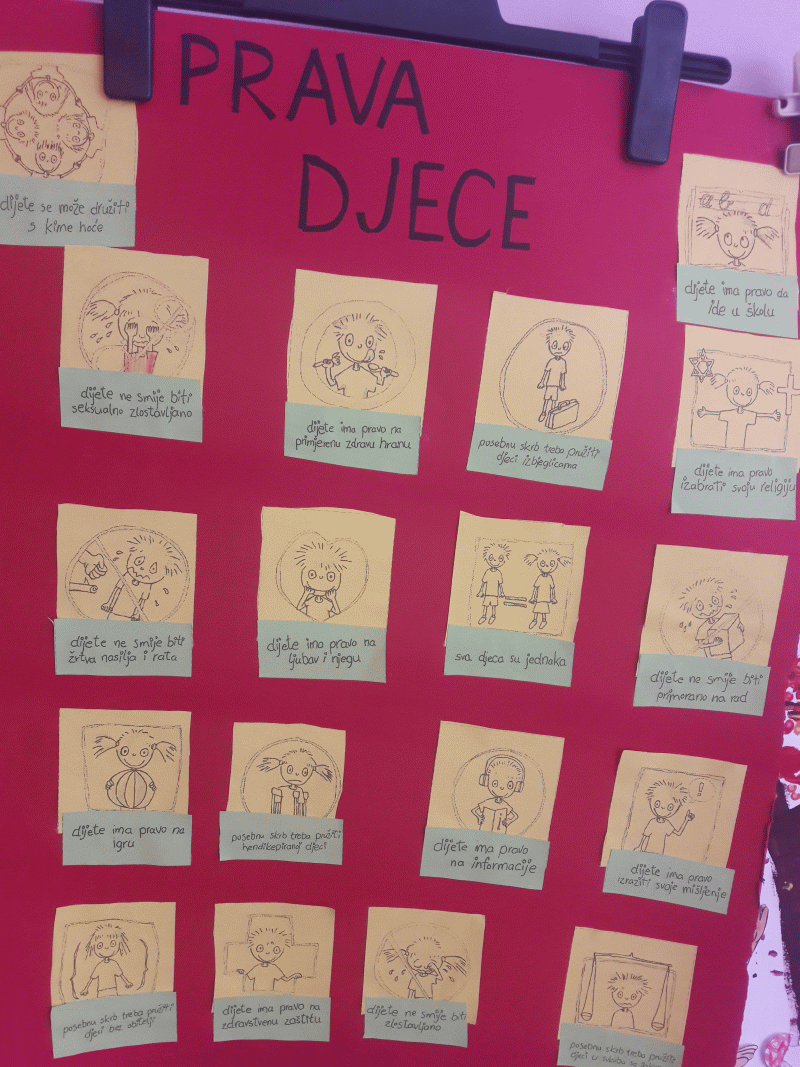 PRAVA
DJECE
dijete se može družiti
s kime hoće
a b d
dijete ima pravo da
ide u školu
dijete ne smije biti
seksualno zlostavljano
dijete ima pravo na
primjerenu zdravu hranu
posebnu skrb treba pružiti
djeci izbjeglicama
dijete ima pravo
izabrati svoju religiju
dijete ne smije biti
žrtva nasilja i rata
dijete ima pravo na
ljubav i njegu
sva djeca su jednaka
dijete ne smije biti
primorano na rad
dijete ima pravo na
igru
posebnu skrb treba pružiti
hendikepiranoj djeci
dijete ima pravo
na informacije
!
dijete ima pravo
izraziti svoje mišljenje
posebnu skrb treba pružiti
djeci bez obitelji
dijete ima pravo na
zdravstvenu zaštitu
dijete ne smije biti
zlostavljano
posebnu skrb treba pružiti
djeci u sukobu sa